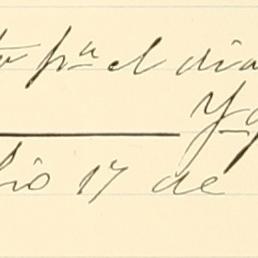 pa el dia
Yg
lio 17 de